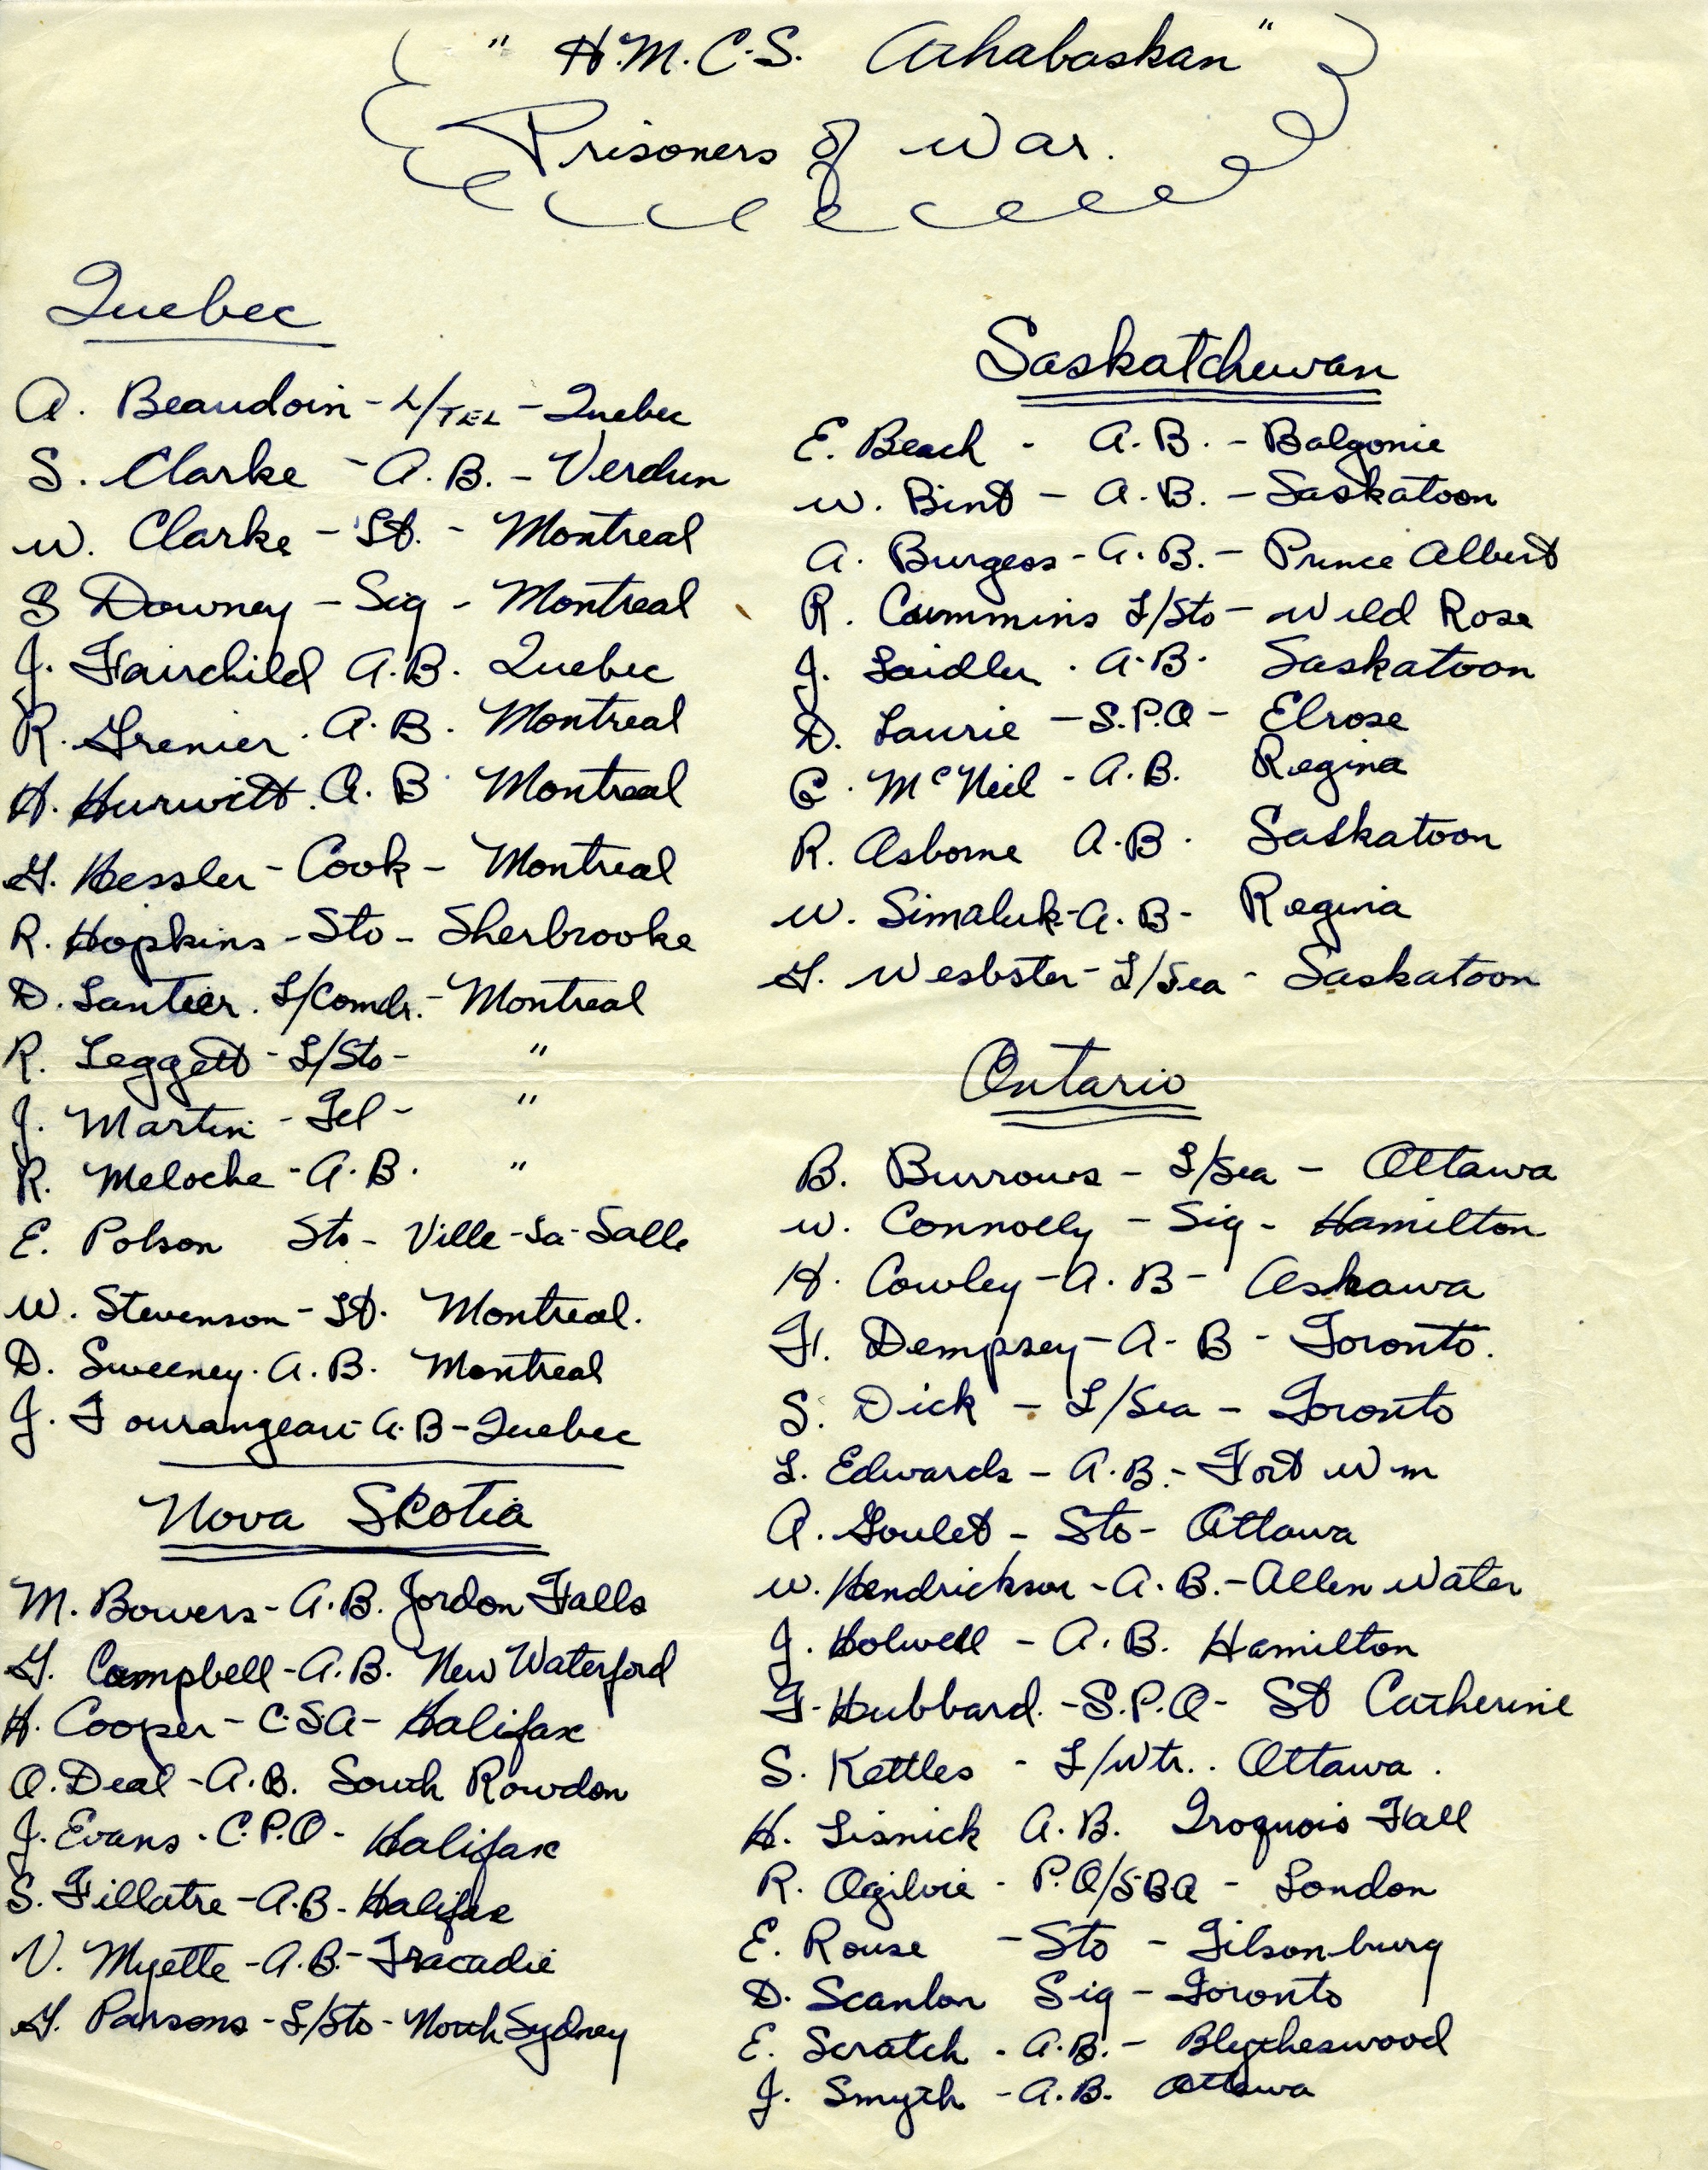 " H.M.C.S. Athabaskan "
Prisoners of War.
Quebec
A. Beaudoin - L/TEL - Quebec
S. Clarke - A.B. - Verdun
W. Clarke - Lt. - Montreal
S Downey - Sig - Montreal
J. Fairchild A.B. Quebec
R. Grenier. A.B. Montreal
H. Hurwitt. A.B Montreal
G. Hessler - Cook - Montreal
R. Hopkins - Sto - Sherbrooke
D. Lantier. L/Comdr. - Montreal
R. Leggett - L/Sto - "
J. Martin - Tel - "
R. Meloche - A.B. "
E. Polson Sto - Ville-La-Salle
W. Stevenson - Lt. Montreal.
D. Sweeney. A.B. Montreal
J. Tourangeau - A.B - Quebec
Nova Scotia
M. Bowers - A.B. Jordon Falls
G. Campbell - A.B. New Waterford
H. Cooper - C.S.A - Halifax
O. Deal - A.B. South Rawdon
J. Evans - C.P.O - Halifax
S. Fillatre - A.B - Halifax
V. Myette - A.B. - Tracadie
G. Parsons - L/Sto - North Sydney
Saskatchewan
E. Beach - A.B. - Balgonie
W. Bint - A.B. - Saskatoon
A. Burgess - A.B. - Prince Albert
R. Cummins L/Sto - Wild Rose
J. Laidler. A.B. Saskatoon
D. Laurie - S.P.O - Elrose
C. McNeil - A.B. Regina
R. Osborne A.B. Saskatoon
W. Simaluk - A.B - Regina
G. Wesbster - L/Sea - Saskatoon
Ontario
B. Burrows - L/Sea - Ottawa
W. Connolly - Sig - Hamilton
H. Cowley - A.B - Oshawa
F. Dempsey - A.B - Toronto.
S. Dick - L/Sea - Toronto
L. Edwards - A.B. - Fort Wm
A. Goulet - Sto - Ottawa
W. Hendrickson - A.B. - Allen Water
J. Holwell - A.B. Hamilton
F. Hubbard. - S.P.O - St Catherine
S. Kettles - L/Wtr.. Ottawa.
H. Lisnick A.B. Iroquois Fall
R. Ogilvie - P.O/SBA - London
E. Rouse - Sto - Tilsonburg
D. Scanlon Sig - Toronto
E. Scratch. A.B. - Blytheswood
J. Smyth - A.B. Ottawa